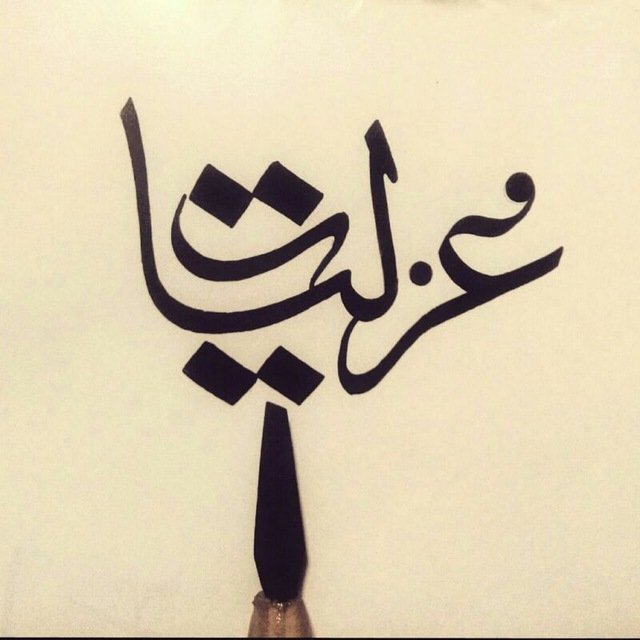 غزليات